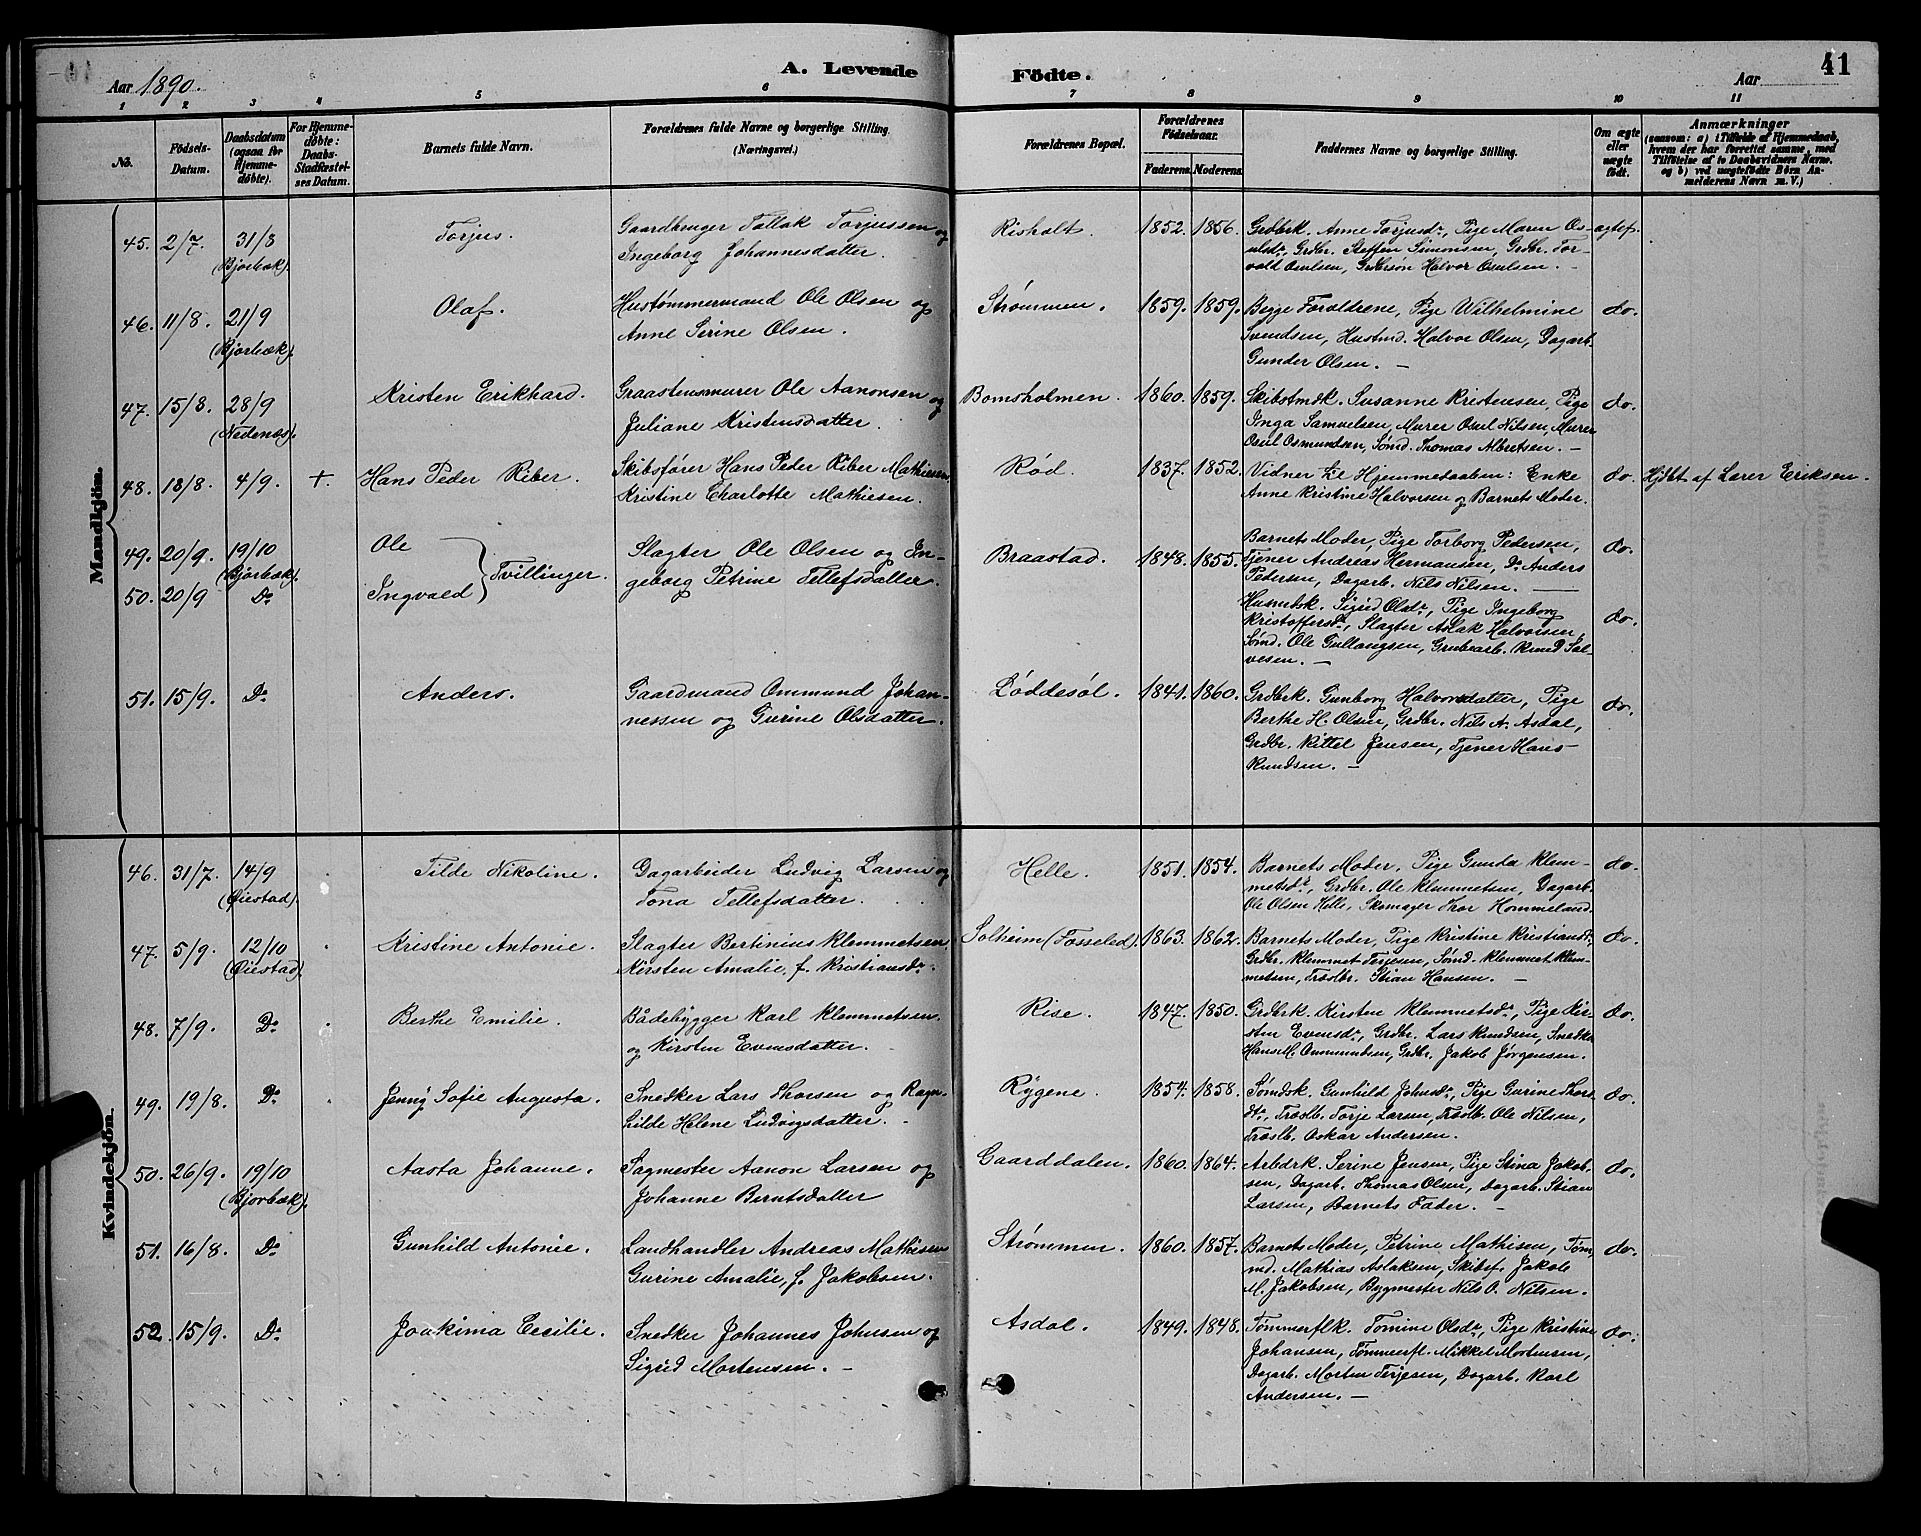 Aar 1890.
A. Levende
Födte.
Aar
41
1 2 3 4 5 6 7 8 9 10 11
No.
Födsels-Datum.
Daabsdatum (ogsaa for Hjemme-døbte).
For Hjemme-døbte: Daabs-Stadfæstel-ses Datum.
Barnets fulde Navn.
Forældrenes fulde Navne og borgerlige Stilling. (Næringsvei.)
Forældrenes Bopæl.
Forældrenes Födselsaar.
Faderens. Moderens.
Faddernes Navne og borgerlige Stilling.
Om ægte eller uægte født.
Anmærkninger
(saasom: a) i Tilfælde af Hjemmedaab, hvem der har forrettet samme, med Tilføielse af to Daabsvidners Navne, og b) ved uægtefødte Börn An-melderens Navn m. V.)
Mandkjön.
45. 2/7. 31/8 (Bjorbæk). Torjus. Gaardbruger Tallak Torjussen og
Ingeborg Johannesdatter.
Risholt. 1852. 1856. Grdbrk. Anne Torjusdr, Pige Maren Os-
ulsdr, Grdbr. Steffen Simonsen, Grdbr. Tor-
vald Osulsen, Grdbrsøn Halvor Osulsen. —
ægtef.
46. 11/8. 21/9 (Bjorbæk). Olaf. Hustømmermand Ole Olsen og
Anne Serine Olsen.
Strømmen. 1859. 1859. Begge Forældrene, Pige Wilhelmine
Svendsen, Hustmd. Halvor Olsen, Dagarb.
Gunder Olsen. —
do.
47. 15/8. 28/9 (Nedenæs). Kristen Erikhard. Graastensmurer Ole Aanonsen og
Juliane Kristensdatter.
Bomsholmen. 1860. 1859. Skibstmdk. Susanne Kristensen, Pige
Inga Samuelsen, Murer Osul Nilsen, Murer
Osul Osmundsen, Sømd. Thomas Albretsen. —
do.
48. 18/8. 4/9. +. Hans Peder Riber. Skibsfører Hans Peder Riber Mathiesen
Kristine Charlotte Mathiesen.
Rød. 1837. 1852. Vidner til Hjemmedaaben: Enke
Anne Kristine Halvorsen og Barnets Moder.
do. Hjdbt af Lærer Eriksen.
49. 20/9. 19/10 (Bjorbæk). Ole
50. 20/9 Do Ingvald } Tvillinger.
Slagter Ole Olsen og In-
geborg Petrine Tellefsdatter.
Braastad. 1848. 1855. Barnets Moder, Pige Torborg Pedersen,
Tjener Andreas Hermansen, Do Anders
Pedersen, Dagarb. Nils Nilsen. —
do.
Husmdsk. Sigrid Olsdr, Pige Ingeborg
Kristoffersdr, Slagter Aslak Halvorsen,
Sømd. Ole Gullangsen, Grubearb. Knud Sal-
vesen. —
do.
51. 15/9. Do Anders. Gaardmand Ommund Johan-
nessen og Gurine Olsdatter.
Løddesøl. 1841. 1860. Grdbrk. Gunborg Halvorsdatter, Pige
Berthe H. Olsen, Grdbr. Nils A. Asdal,
Grdbr. Kittel Jensen, Tjener Hans
Knudsen. —
do.
Kvindekjön.
46. 31/7. 14/9 (Øiestad). Tilde Nikoline. Dagarbeider Ludvig Larsen og
Tona Tellefsdatter.
Helle. 1851. 1854. Barnets Moder, Pige Gunda Klem-
metsdr, Grdbr. Ole Klemmetsen, Dagarb.
Ole Olsen Helle, Skomager Thor Hommeland.
do.
47. 5/9. 12/10 (Øiestad). Kristine Antonie. Slagter Bertinius Klemmetsen
Kirsten Amalie, f. Kristiansdr.
Solheim (Fosseled). 1863. 1862. Barnets Moder, Pige Kristine Kristiansdr,
Grdbr. Klemmet Terjesen, Sømd. Klemmet Klem-
metsen, Træslbr. Stian Hansen. —
do.
48. 7/9. Do Berthe Emilie. Bådebygger Karl Klemmetsen
og Kirsten Evensdatter.
Rise. 1847. 1850. Grdbrk. Kirsten Klemmetsdr, Pige Kir-
sten Evensdr, Grdbr. Lars Knudsen, Snedker
Hans M. Ommundsen, Grdbr. Jakob Jørgensen.
do.
49. 19/8. Do Jenny Sofie Augusta. Snedker Lars Thorsen og Ragn-
hilde Helene Ludvigsdatter.
Rygene. 1854. 1858. Sømdsk. Gunhild Johnsdr, Pige Gurine Thors-
dr, Træslb. Torje Larsen, Træslb. Ole Nilsen,
Træslb. Oskar Andersen.
do.
50. 26/9. 19/10 (Bjorbæk). Aasta Johanne. Sagmester Aanon Larsen og
Johanne Berntsdatter
Gaarddalen. 1860. 1864. Arbdrk. Serine Jensen, Pige Stina Jakob-
sen, Dagarb. Thomas Olsen, Dagarb. Stian
Larsen, Barnets Fader. —
do.
51. 16/8. Do Gunhild Antonie. Landhandler Andreas Mathisen
Gurine Amalie, f. Jakobsen.
Strømmen. 1860. 1857. Barnets Moder, Petrine Mathisen, Tøm
md. Mathias Aslaksen, Skibsf. Jakob
M. Jakobsen, Bygmester Nils O. Nilsen.
do.
52. 15/9. Do Joakima Cecilie. Snedker Johannes Johnsen og
Sigrid Mortensen. —
Asdal. 1849. 1848. Tømmerflk. Tomine Olsdr, Pige Kristine
Johansen, Tømmerfl. Mikkel Mortensen,
Dagarb. Morten Terjesen, Dagarb. Karl
Andersen. —
do.